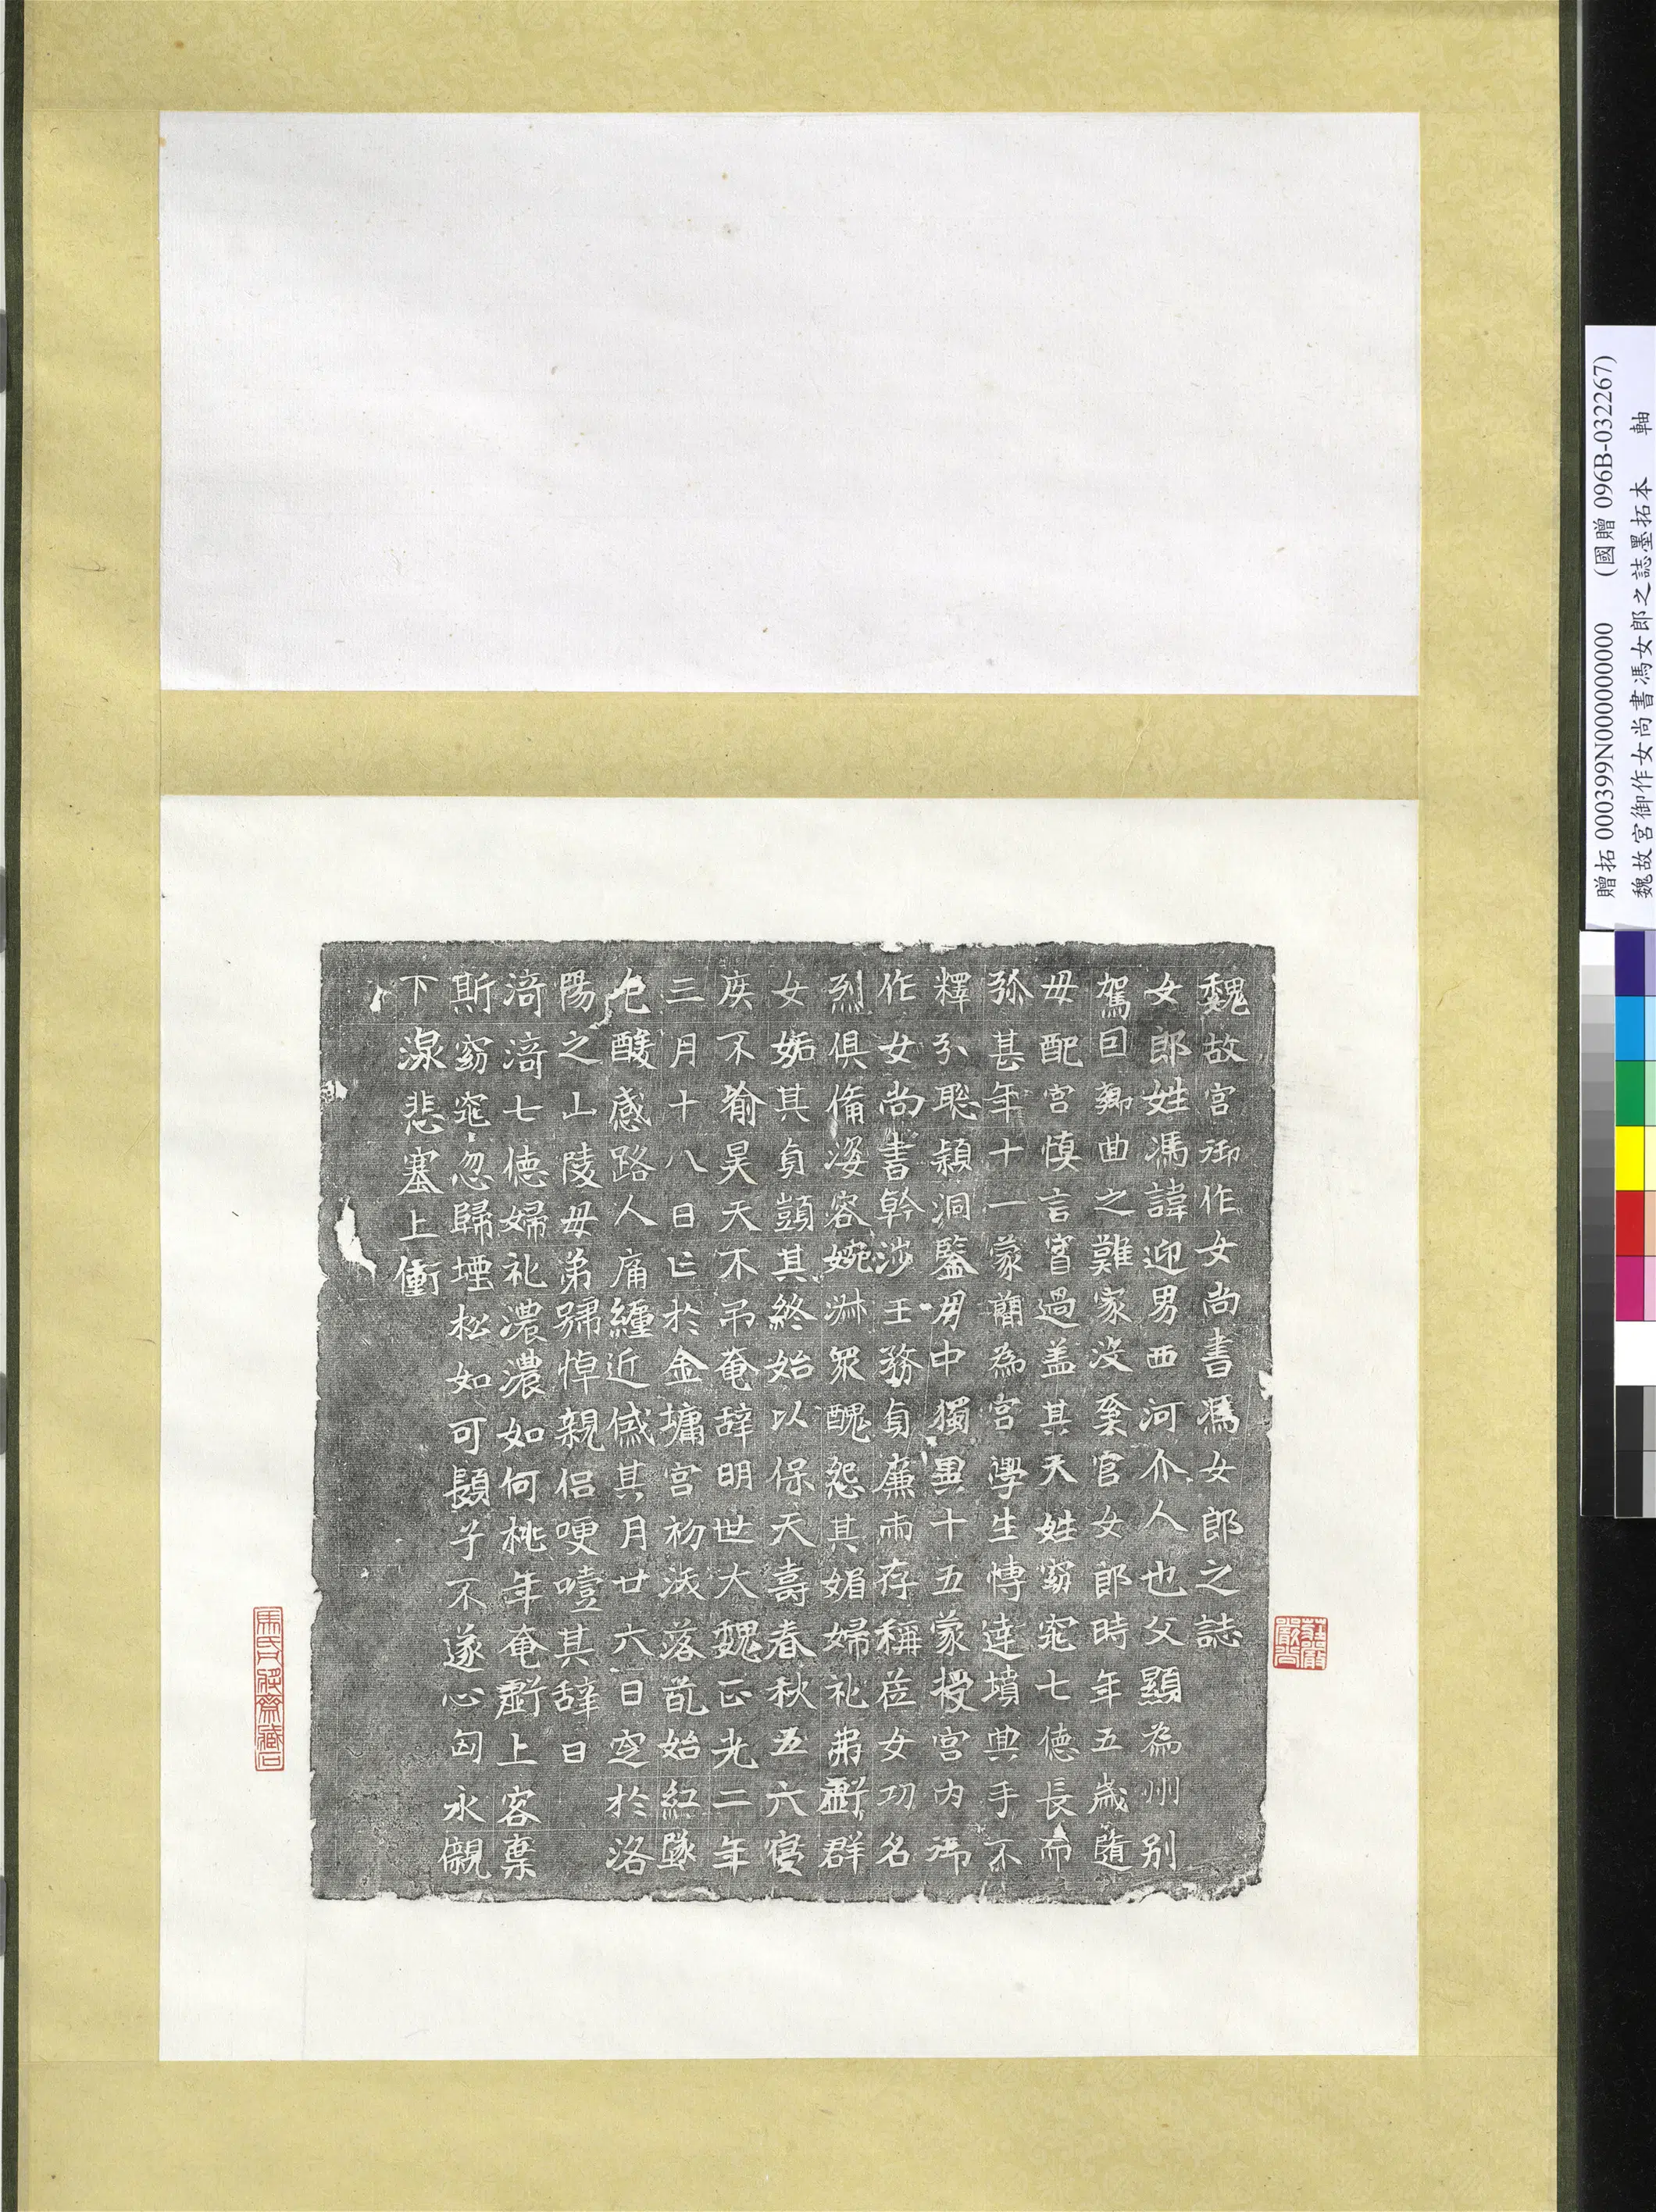 魏故宮御作女尚書馮女郎之誌
女郎姓馮諱迎男西河介人也父顯為州別
駕回鄉曲之難家沒奚官女郎時年五歲隨
母配宮慎言寡過蓋其天姓窈窕七德長而
弥甚年十一蒙簡為宮學生博達墳典手不
釋弥聡穎洞鑒朋中獨異十五蒙授宮內御
作女尚書幹涉王務貞廉兩存稱莅女功名
烈俱備姿容婉淋眾醜怨其媚婦礼弗虧群
女妬其貞顗其終始以保天壽春秋五六寝
疾不喻昊天不吊奄辞明世大魏正光二年
三月十八日亡於金墉宮初渓落芘始紅墜
色酸感路人痛纏近慼其月廿六日窆於洛
陽之山陵母弟號悼親侣哽噎其辞曰
渏渏七德婦礼濃濃如何桃年奄虧上容棄
斯窈窕忽歸堙松如可贖子不遂心匈永覵
下湶悲塞上衝
贈拓 000399N000000000 (國贈 096B-032267)
魏故宮御作女尚書馮女郎之誌墨拓本 軸